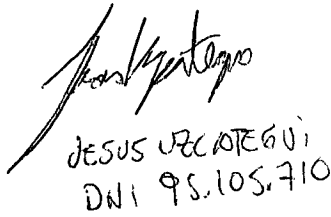 JESUS UZCATEGUI
DNI 95.105.710